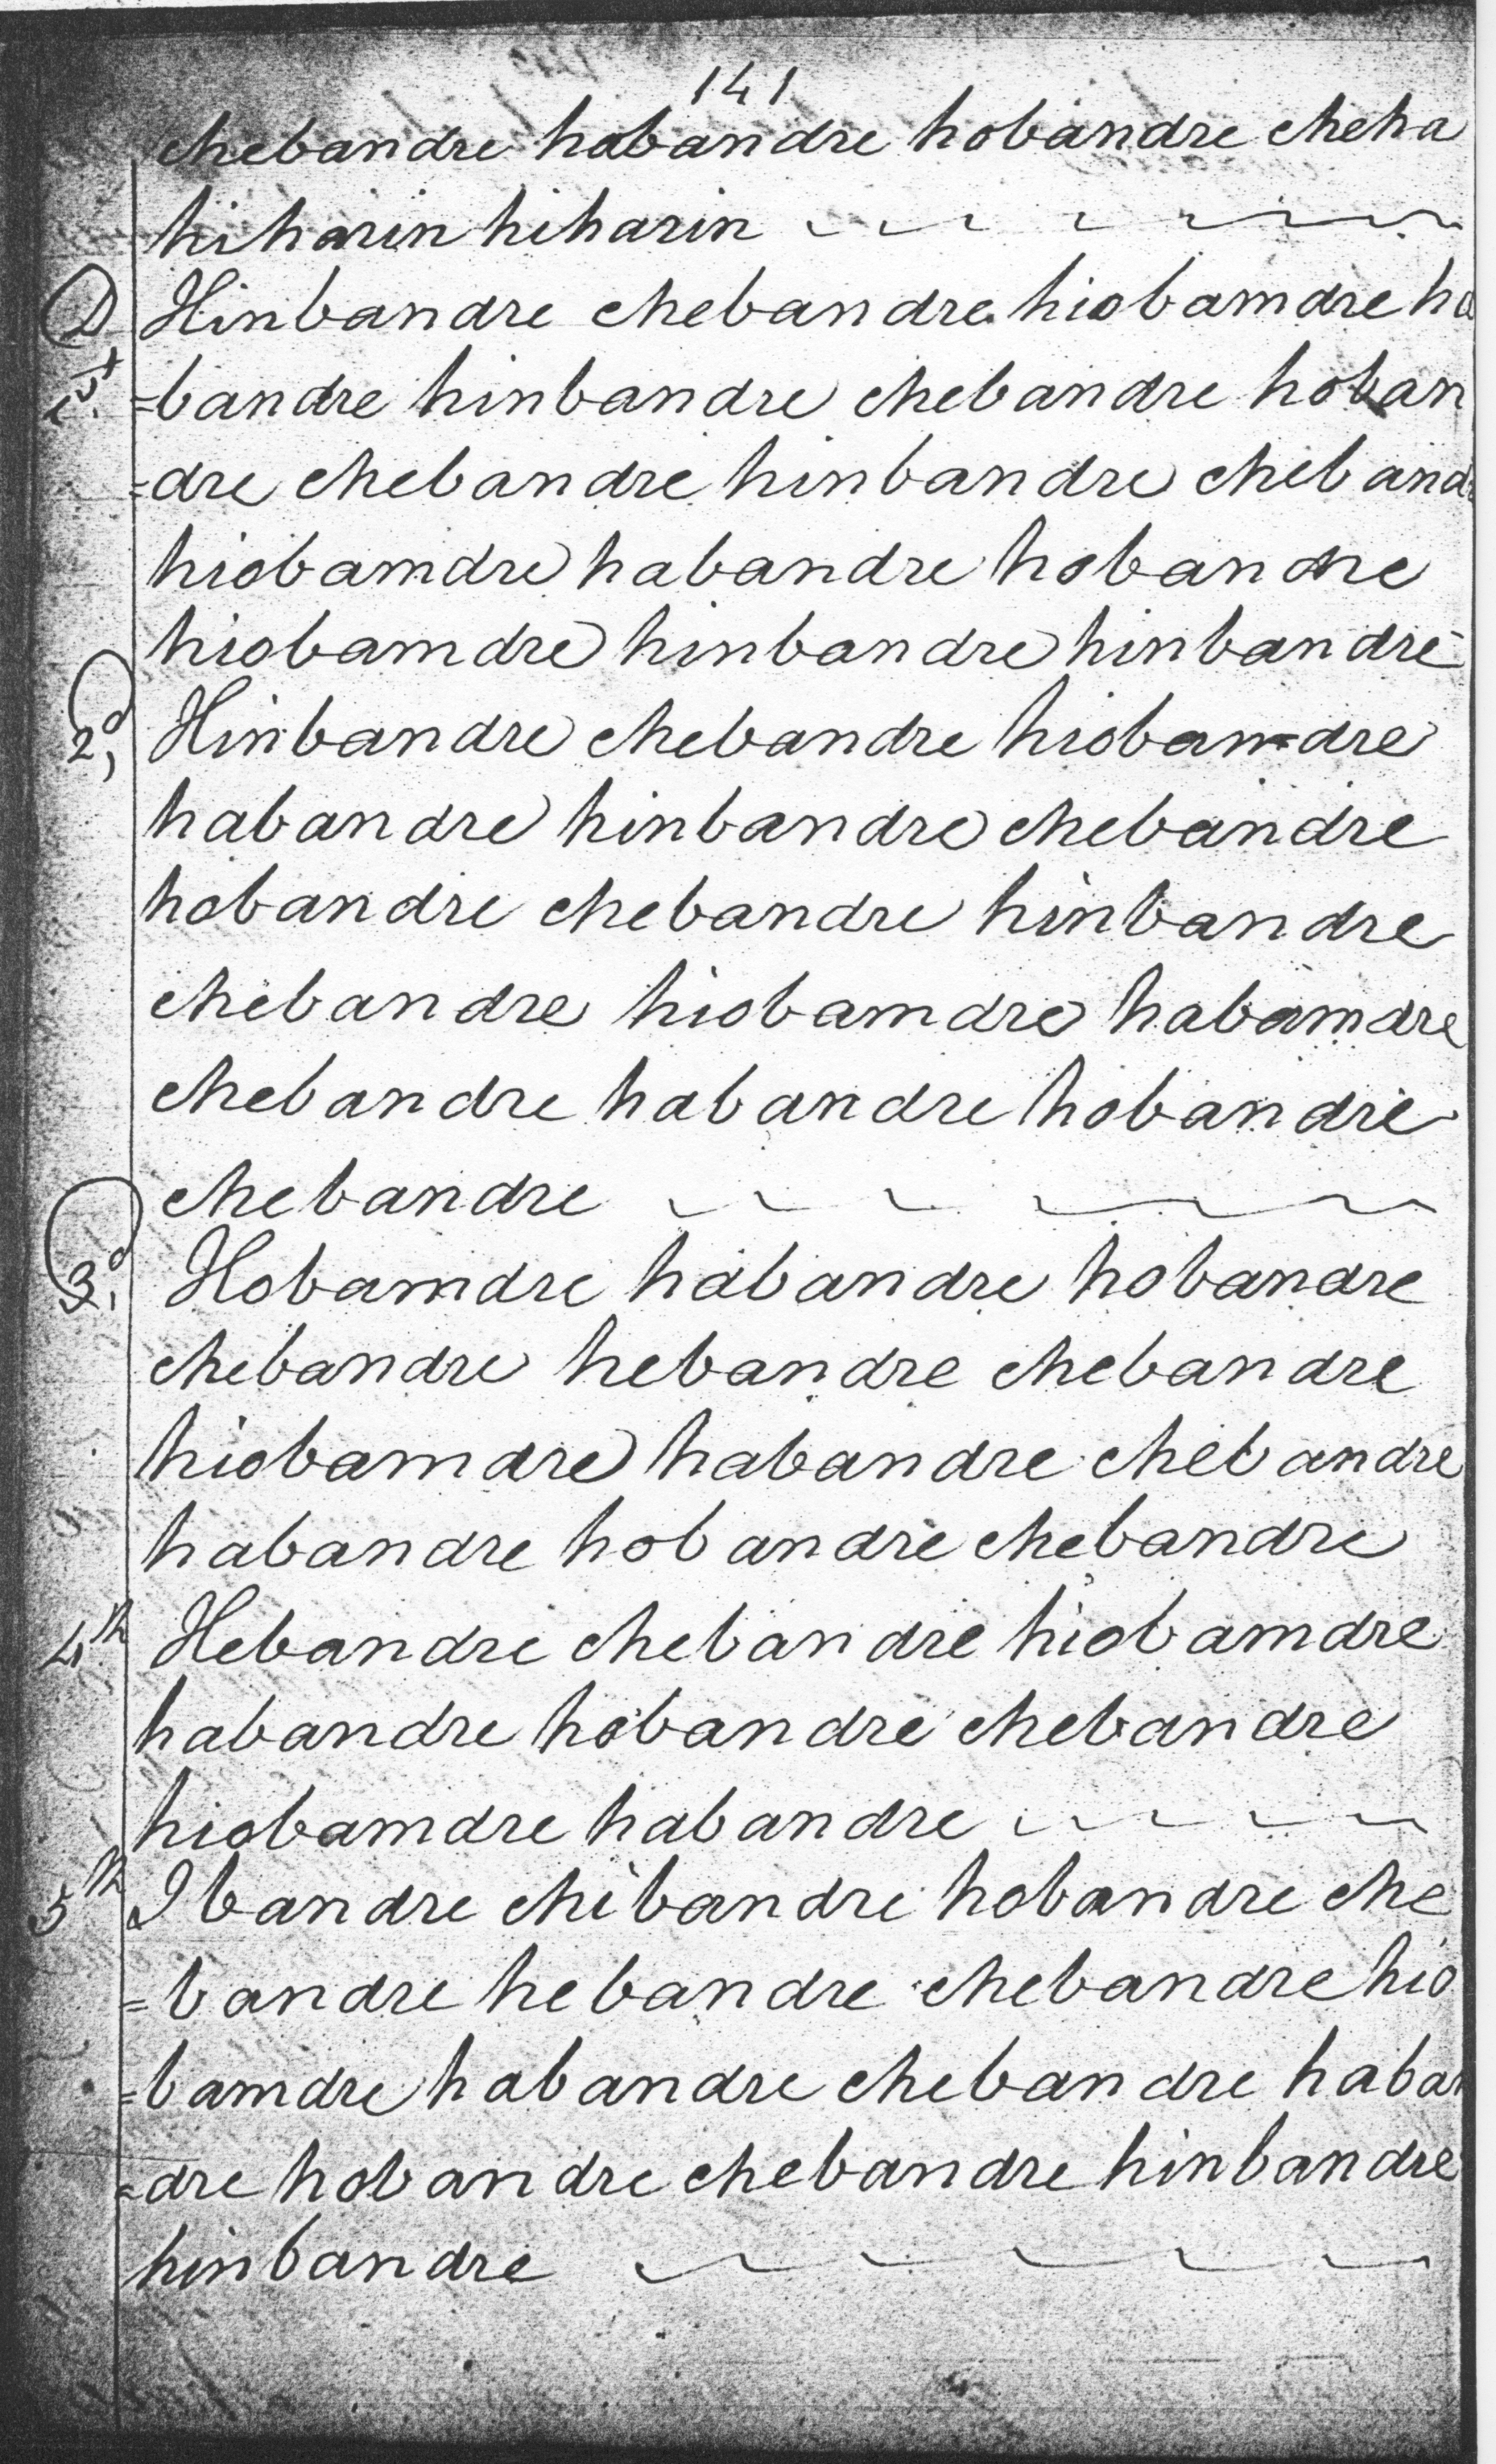 141
chebandre habandre hobandre cheha
hiharin hiharin
D Hinbandre chebandre hiobamdre ha
1st =bandre hinbandre chebandre hoban
=dre chebandre hinbandre chebandr
hiobamdre habandre hobandre
hiobamdre hinbandre hinbandre
2d, Hinbandre chebandre hiobam=dre
habandre hinbandre chebandre
hobandre chebandre hinbandre
chebandre hiobamdre habamdre
chebandre habandre hobandre
chebandre
3d, Hobamdre habandre hobandre
chebandre hebandre chebandre
hiobamdre habandre chebandre
habandre hobandre chebandre
4th Hebandre chebandre hiobamdre
habandre hobandre chebandre
hiobamdre habandre
5th Ibandre chibandre hobandre che
=bandre hebandre chebandre hio
=bamdre habandre chebandre haban
=dre hobandre chebandre hinbandre
hinbandre